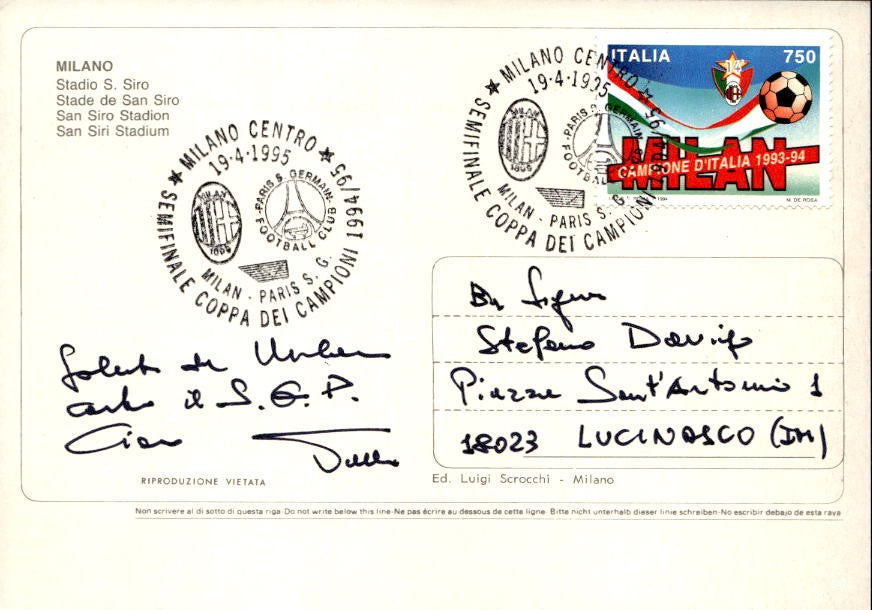 MILANO
Stadio S. Siro
Stade de San Siro
San Siro Stadion
San Siri Stadium
★ MILANO CENTRO ★
19-4-1995
SEMIFINALE COPPA DEI CAMPIONI 1994/95
MILAN
1899
PARIS S. GERMAIN
FOOTBALL CLUB
MILAN - PARIS S. G.
★ MILANO CENTRO ★
19-4-1995
SEMIFINALE COPPA DEI CAMPIONI 1994/95
MILAN
1899
PARIS S. GERMAIN
FOOTBALL
MILAN - PARIS S. G.
ITALIA 750
14
MILAN
CAMPIONE D'ITALIA 1993-94
1994 M. DE ROSA
Stefano
Piazza Sant'Antonio 1
18023 LUCINASCO (IM)
Saluti da
il S. G. P.
Ciao
RIPRODUZIONE VIETATA
Ed. Luigi Scrocchi - Milano
Non scrivere al di sotto di questa riga-Do not write below this line-Ne pas écrire au dessous de cette ligne- Bitte nicht unterhalb dieser linie schreiben-No escribir debajo de esta raya